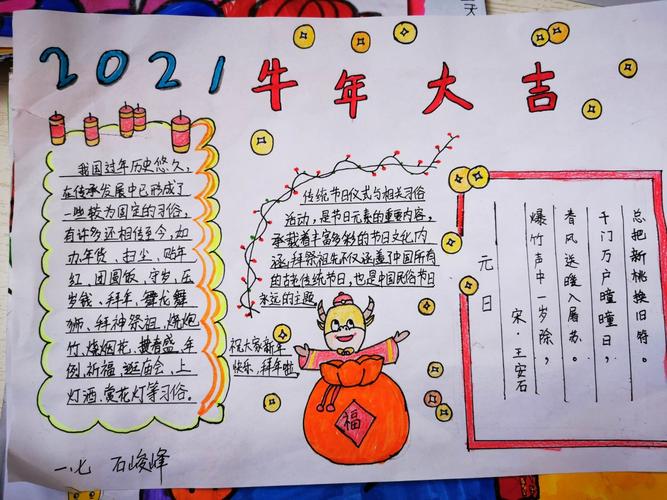 2021牛年大吉
我国过年历史悠久，
在传承发展中已形成了
一些较为固定的习俗，
有许多还相传至今，如
办年货、扫尘、贴年
红、团圆饭、守岁、压
岁钱、拜年、舞龙舞
狮、拜神祭祖、烧炮
竹、烧烟花、
例、祈福、逛庙会、上
灯酒、赏花灯等习俗。
一、七 石峻峰
传统节日仪式与相关习俗
活动，是节日元素的重要内容，
承载着丰富多彩的节日文化内
涵，拜祭祖先不仅涵盖了中国所有
的古老传统节日，也是中国民俗节日
永远的主题。
祝大家新年
快乐，拜年啦
福
元日
宋·王安石
爆竹声中一岁除，
春风送暖入屠苏。
千门万户曈曈日，
总把新桃换旧符。
天